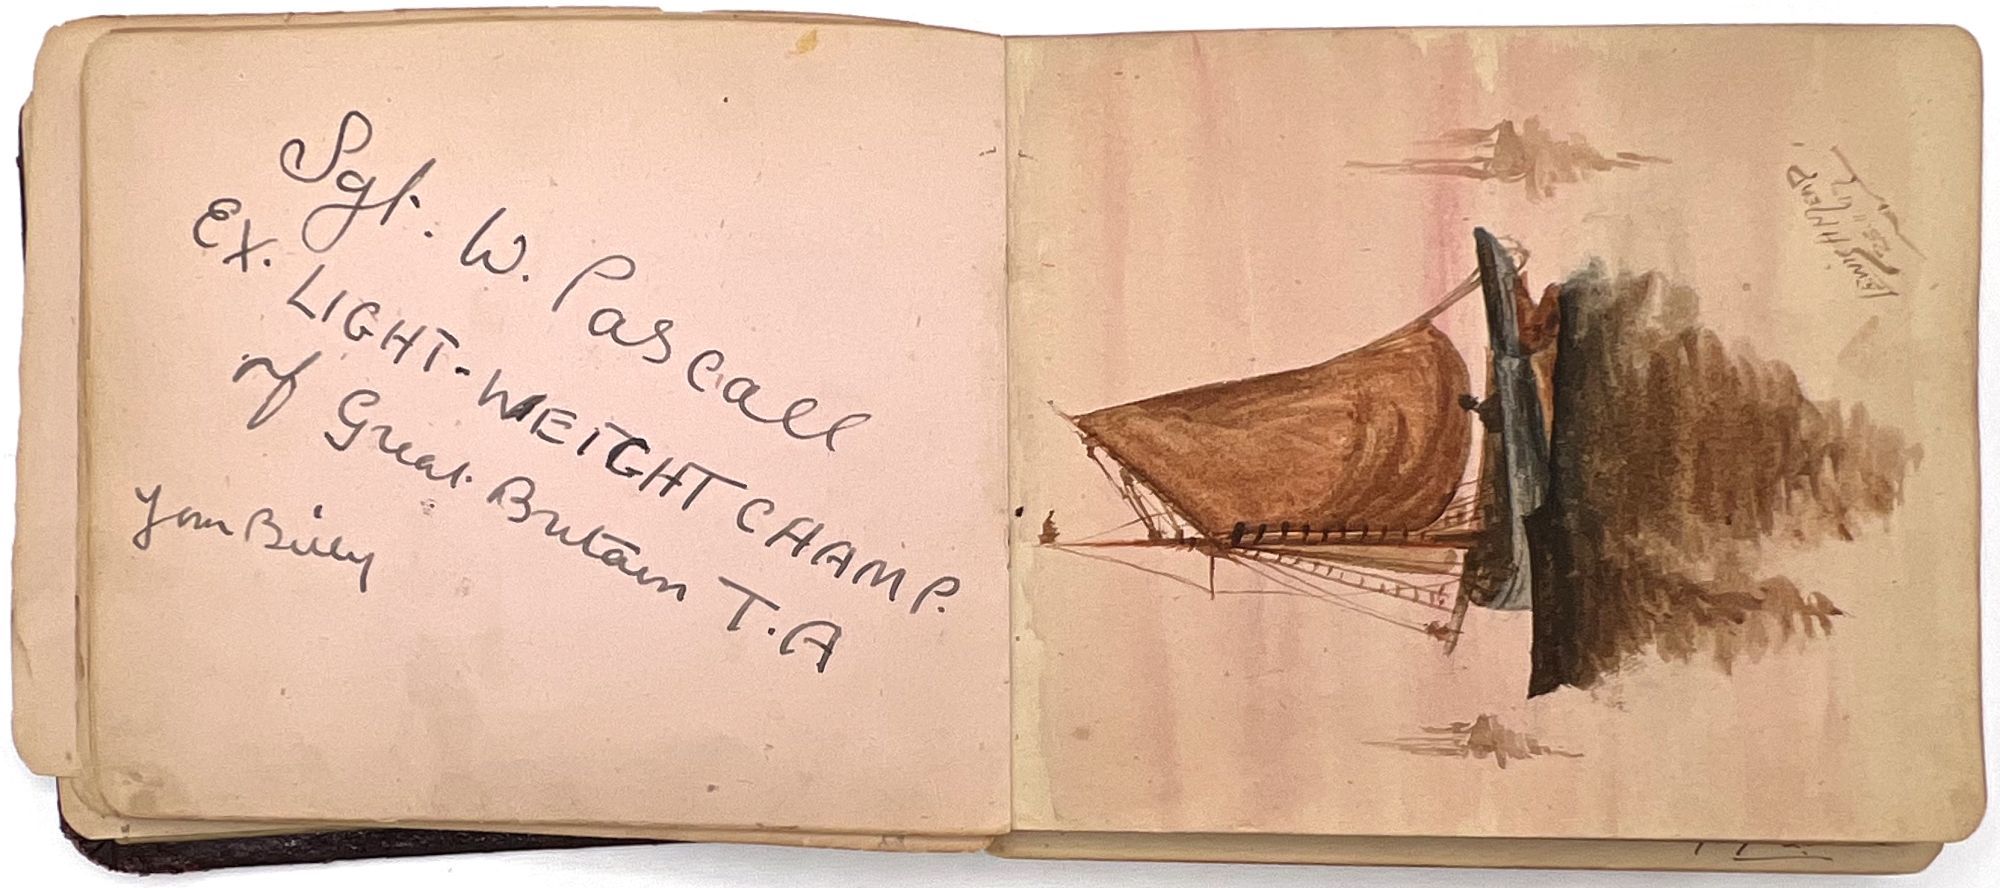 Sgt. W. Pascall
EX. LIGHT-WEIGHT CHAMP.
of Great Britain T.A
Yours Billy